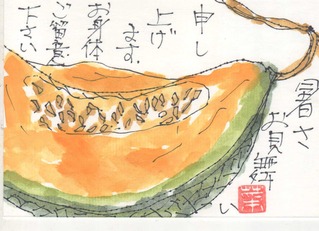 暑さ
お見舞
い
申し
上げ
ます
お身体
ご留意
下さい